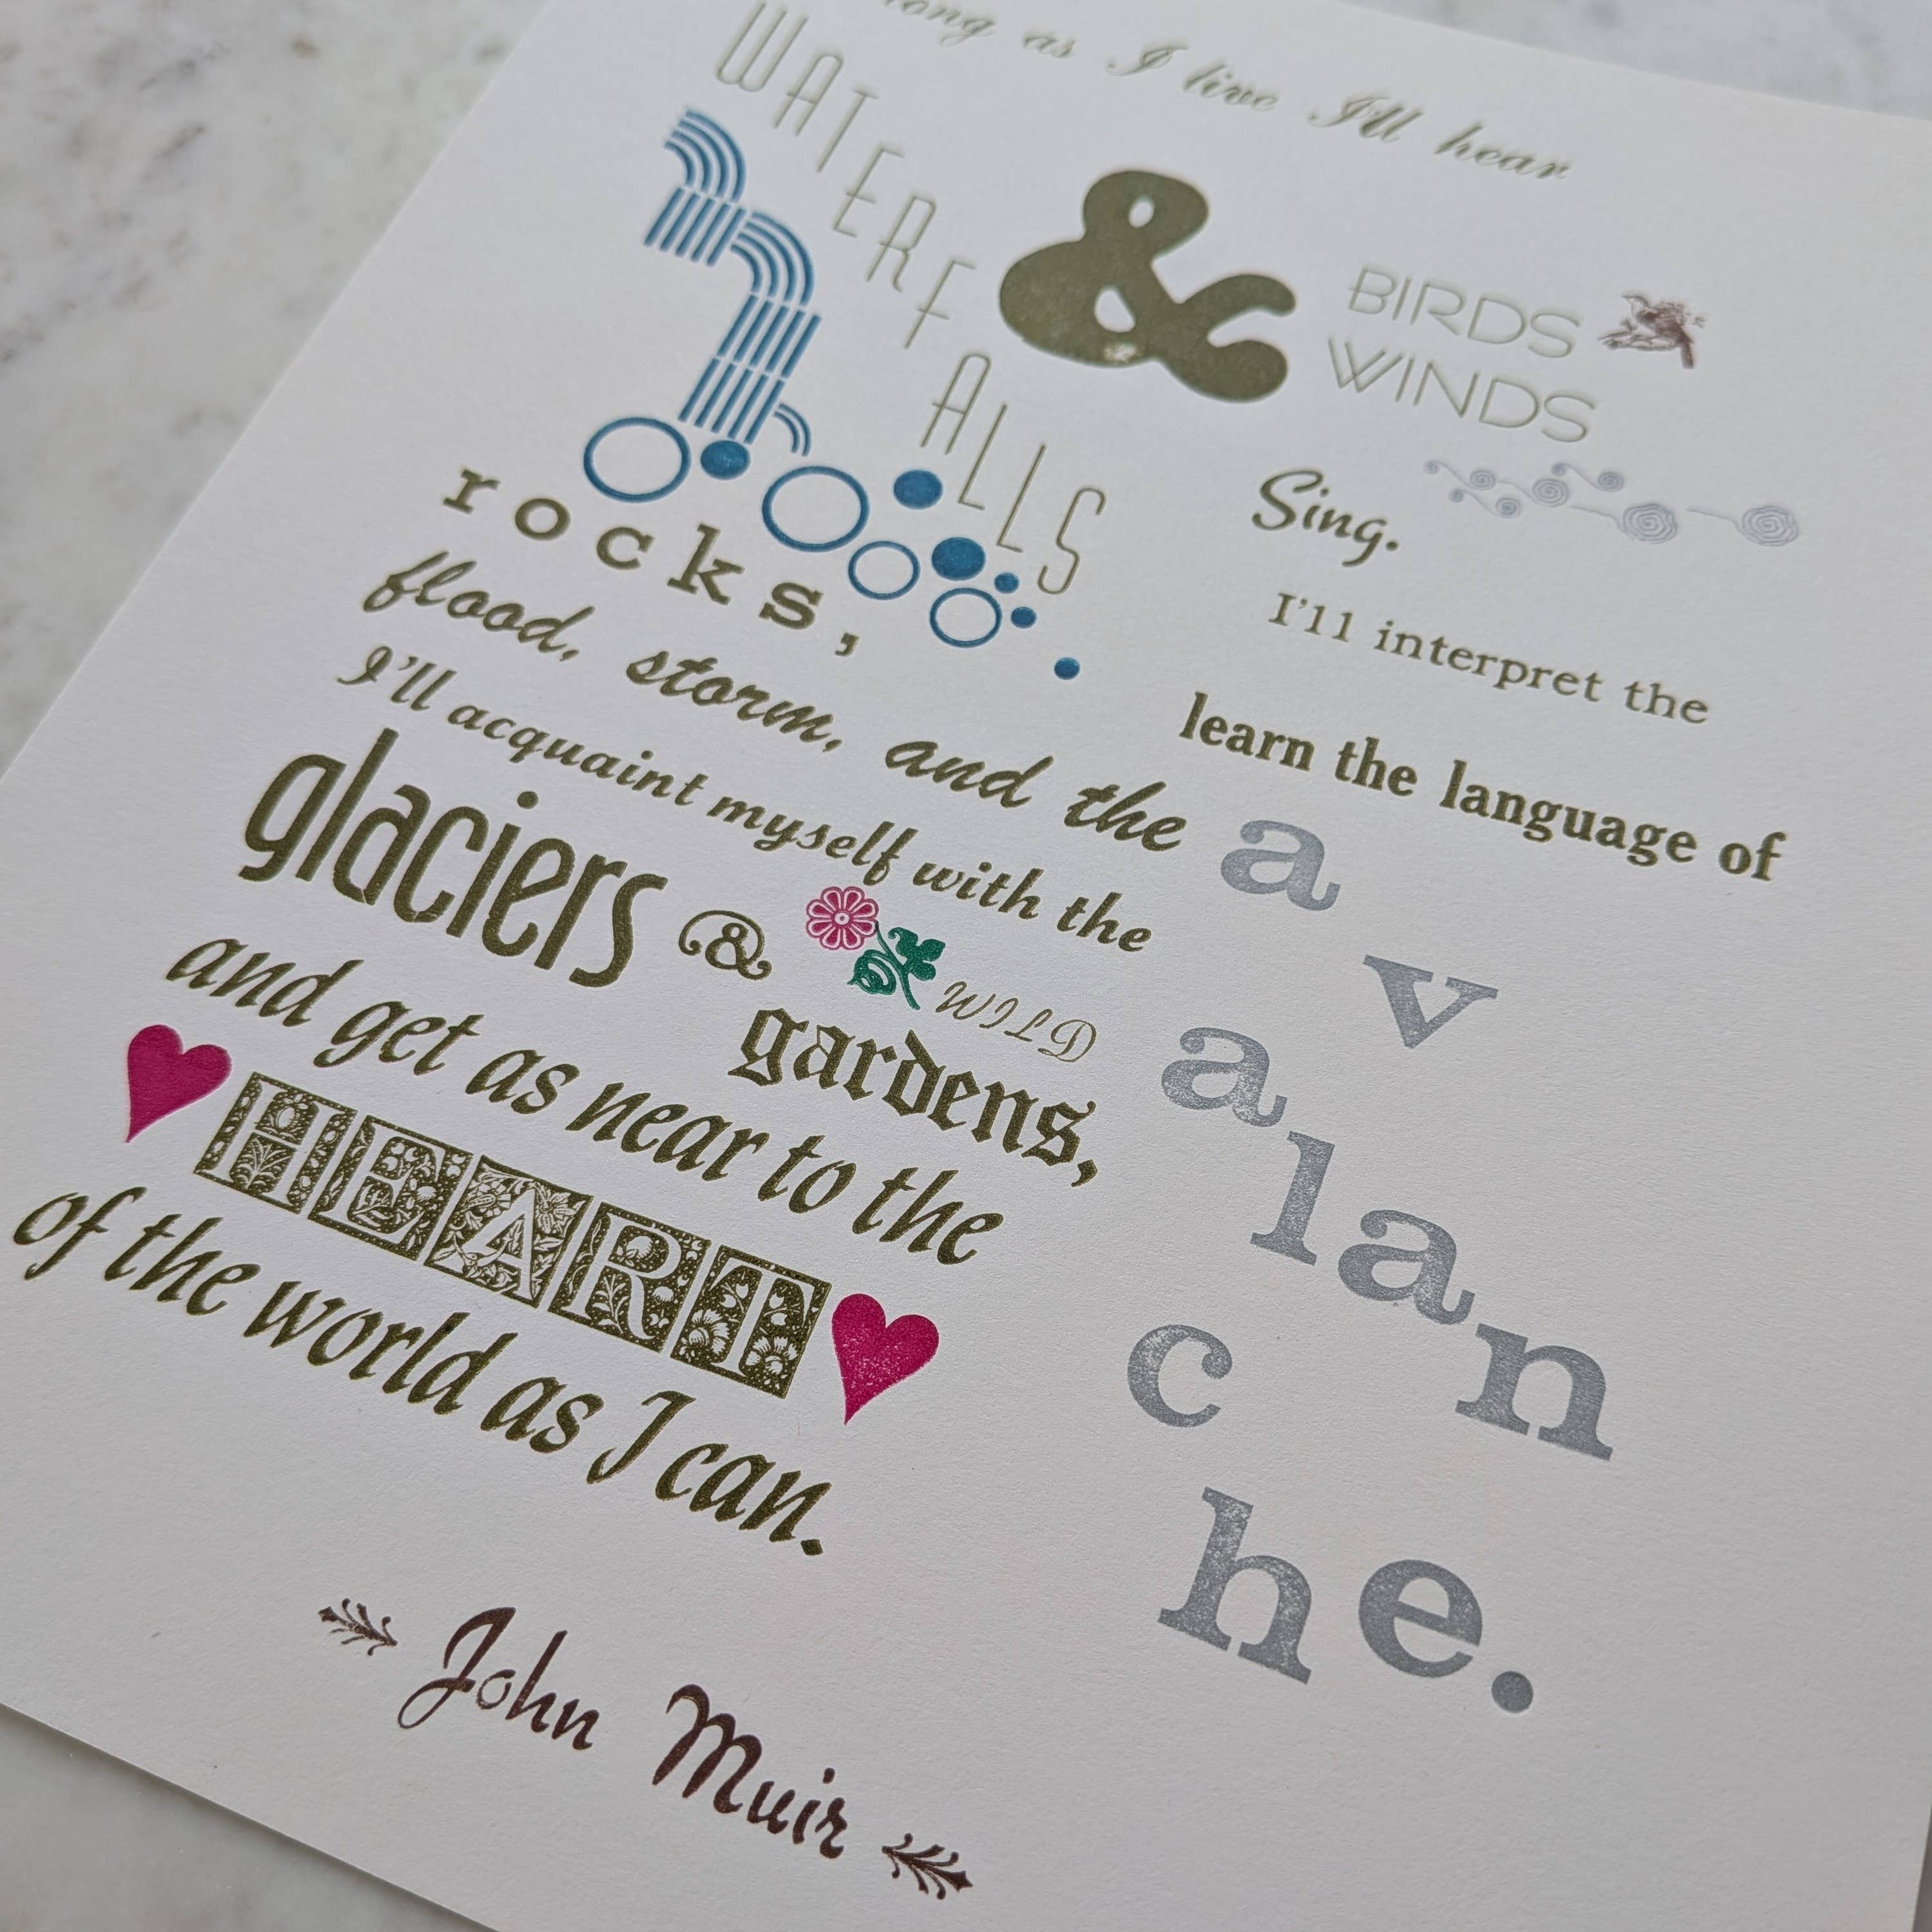 long as I live I'll hear
WATERFALLS
&
BIRDS
WINDS
Sing.
I'll interpret the
rocks,
learn the language of
flood, storm, and the
avalanche.
I'll acquaint myself with the
glaciers & WILD
gardens,
and get as near to the
HEART
of the world as I can.
John Muir